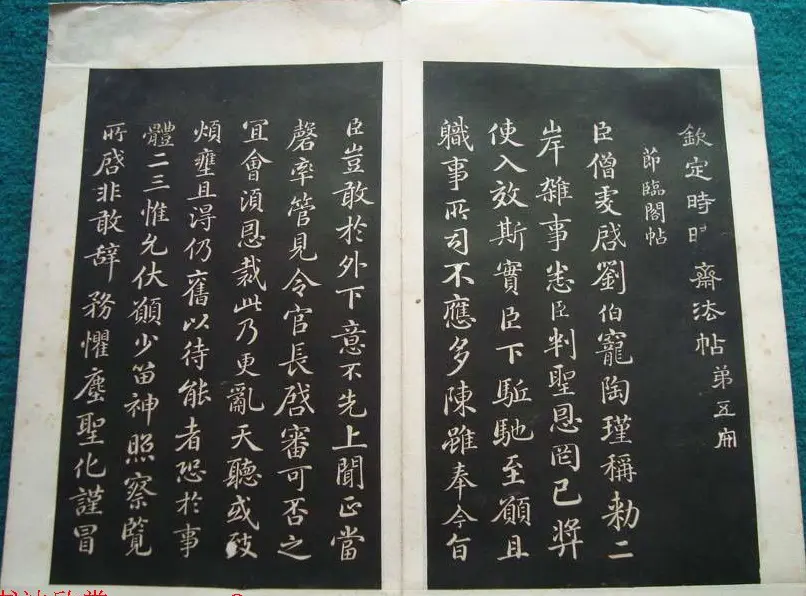 欽定時 齋法帖第五冊
節臨閣帖
臣僧虔啓劉伯寵陶瑾稱勑二
岸雜事悉臣判聖恩罔已奬
使入效斯實臣下駈馳至願且
職事所司不應多陳雖奉今旨
臣豈敢於外下意不先上聞正當
罄率管見令官長啓審可否之
宜會須恩裁此乃更亂天聽或致
煩壅且淂仍舊以待能者恐於事
體二三惟允伏願少留神照察覽
所啓非敢辭務懼塵聖化謹冒